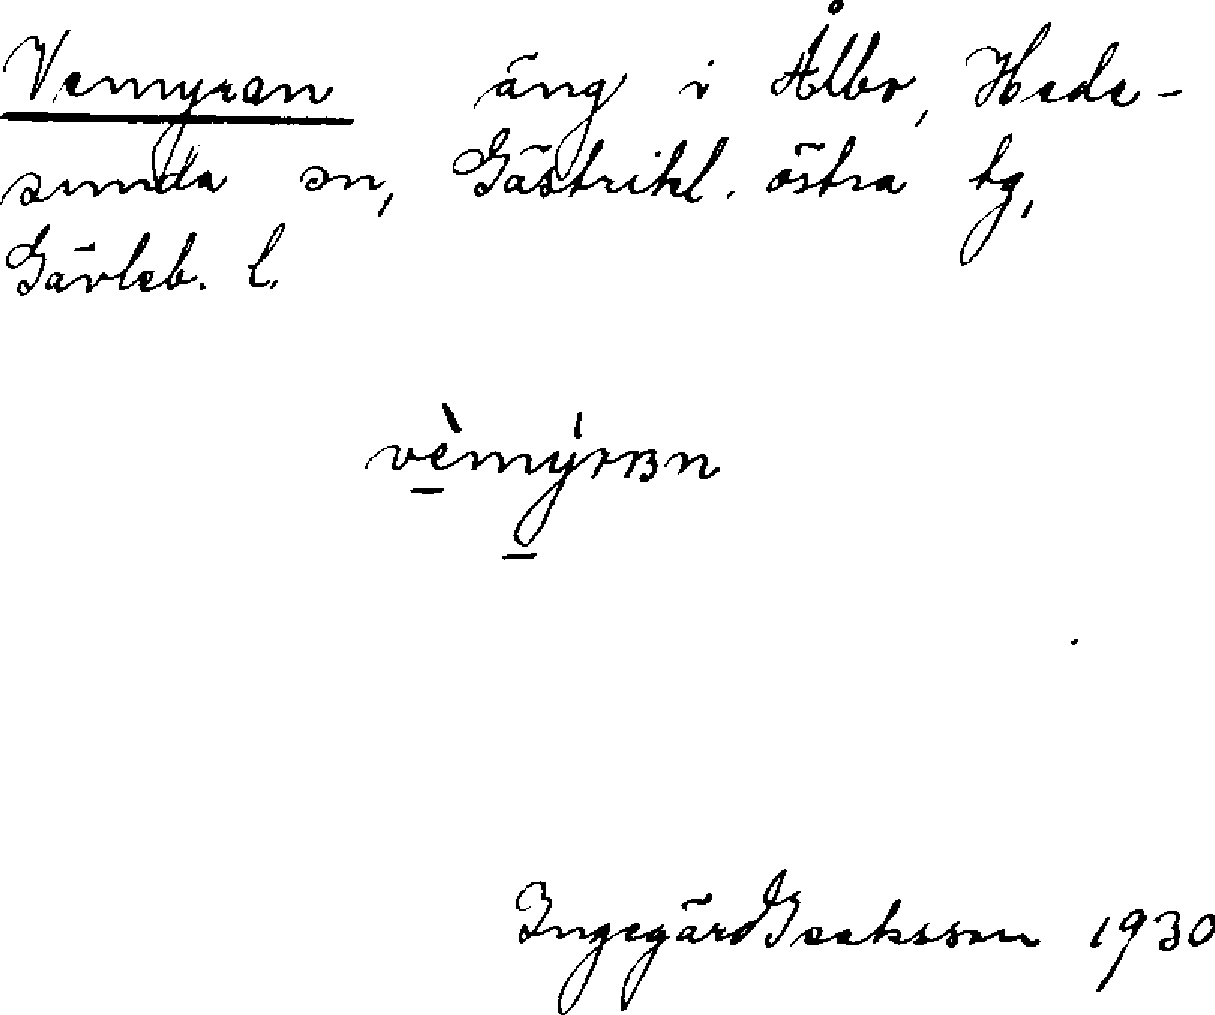 Vemyran äng i Ålbo, Hede-
sunda sn, Gästrikl. östra tg,
Gävleb. l.
vè̱mý̱rrɞn
Ingegärd Isaksson 1930